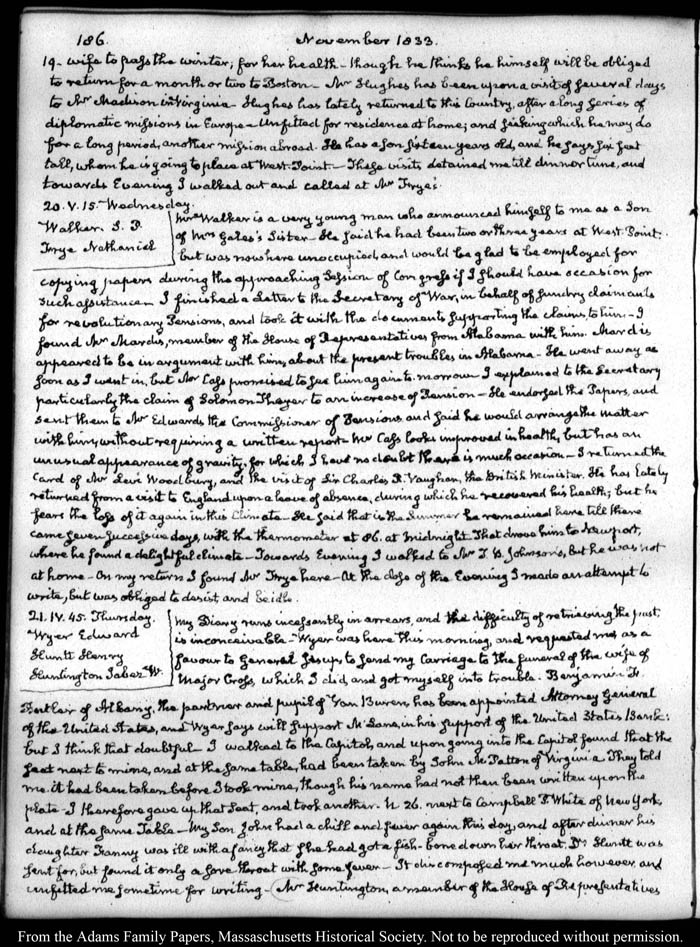 186.
November 1833.
19- wife to pass the winter; for her health - though he thinks he himself will be obliged
to return for a month or two to Boston - Mr Hughes has been upon a visit of several days
to Mr Madison in Virginia - Hughes has lately returned to this Country, after a long series of
diplomatic missions in Europe - Unfitted for residence at home; and seeking which he may do
for a long period, another mission abroad. He has a Son sixteen years old, and he says six feet
tall, whom he is going to place at West-Point - These visits detained me till dinner time, and
towards Evening I walked out and called at Mr Fryes.
20. V. 15. Wednesday.
Walker. S. P.
Frye Nathaniel
Mr Walker is a very young man who announced himself to me as a Son
of Mrs Gales's Sister - He said he had been two or three years at West-Point.
but was now here unoccupied, and would be glad to be employed for
copying papers during the approaching Session of Congress if I should have occasion for
such assistance - I finished a Letter to the Secretary of War, in behalf of sundry claimants
for revolutionary Pensions, and took it with the documents supporting the claims, to him - I
found Mr Mardis, member of the House of Representatives from Alabama with him. Mardis
appeared to be in argument with him, about the present troubles in Alabama - He went away as
soon as I went in, but Mr Cass promised to see him again to-morrow - I explained to the Secretary
particularly the claim of Solomon Thayer to an increase of Pension - He endorsed the Papers, and
sent them to Mr Edwards the Commissioner of Pensions and said he would arrange the matter
with him, without requiring a written report - Mr Cass looks improved in health, but has an
unusual appearance of gravity, for which I have no doubt there is much occasion - I returned the
Card of Mr Levi Woodbury, and the visit of Sir Charles R. Vaughan, the British Minister. He has lately
returned from a visit to England upon a leave of absence, during which he recovered his health; but he
fears the loss of it again in this Climate - He said that is the Summer he remained here till there
came seven successive days, with the thermometer at 86. at midnight. That drove him to Newport,
where he found a delightful climate - Towards Evening I walked to Mr T. B. Johnson's, but he was not
at home - On my return I found Mr Frye here - At the close of the Evening I made an attempt to
write, but was obliged to desist and be idle.
21. IV. 45. Thursday.
Wyer Edward
Huntt Henry
Huntington Jabez W.
My Diary runs incessantly in arrears, and the difficulty of retrieving the past,
is inconceivable - Wyer was here this morning, and requested me as a
favour to General Jesup to send my Carriage to the funeral of the wife of
Major Cross, which I did, and got myself into trouble. Benjamin F.
Butler of Albany, the partner and pupil of Van Buren, has been appointed Attorney General
of the United States, and Wyer says will support McLane, in his support of the United States Bank:
but I think that doubtful - I walked to the Capitol, and upon going into the Capitol found that the
seat next to mine, and at the same table, had been taken by John M. Patton of Virginia. They told
me it had been taken before I took mine, though his name had not then been written upon the
plate - I therefore gave up that seat, and took another. N. 26. next to Campbell P. White of New York,
and at the same Table - My Son John had a chill and fever again this day, and after dinner his
daughter Fanny was ill with a fancy that she had got a fish-bone down her throat. Dr Huntt was
sent for, but found it only a sore throat with some fever - It discomposed me much however and
unfitted me sometime for writing - Mr Huntington, a member of the House of Representatives
From the Adams Family Papers, Massachusetts Historical Society. Not to be reproduced without permission.